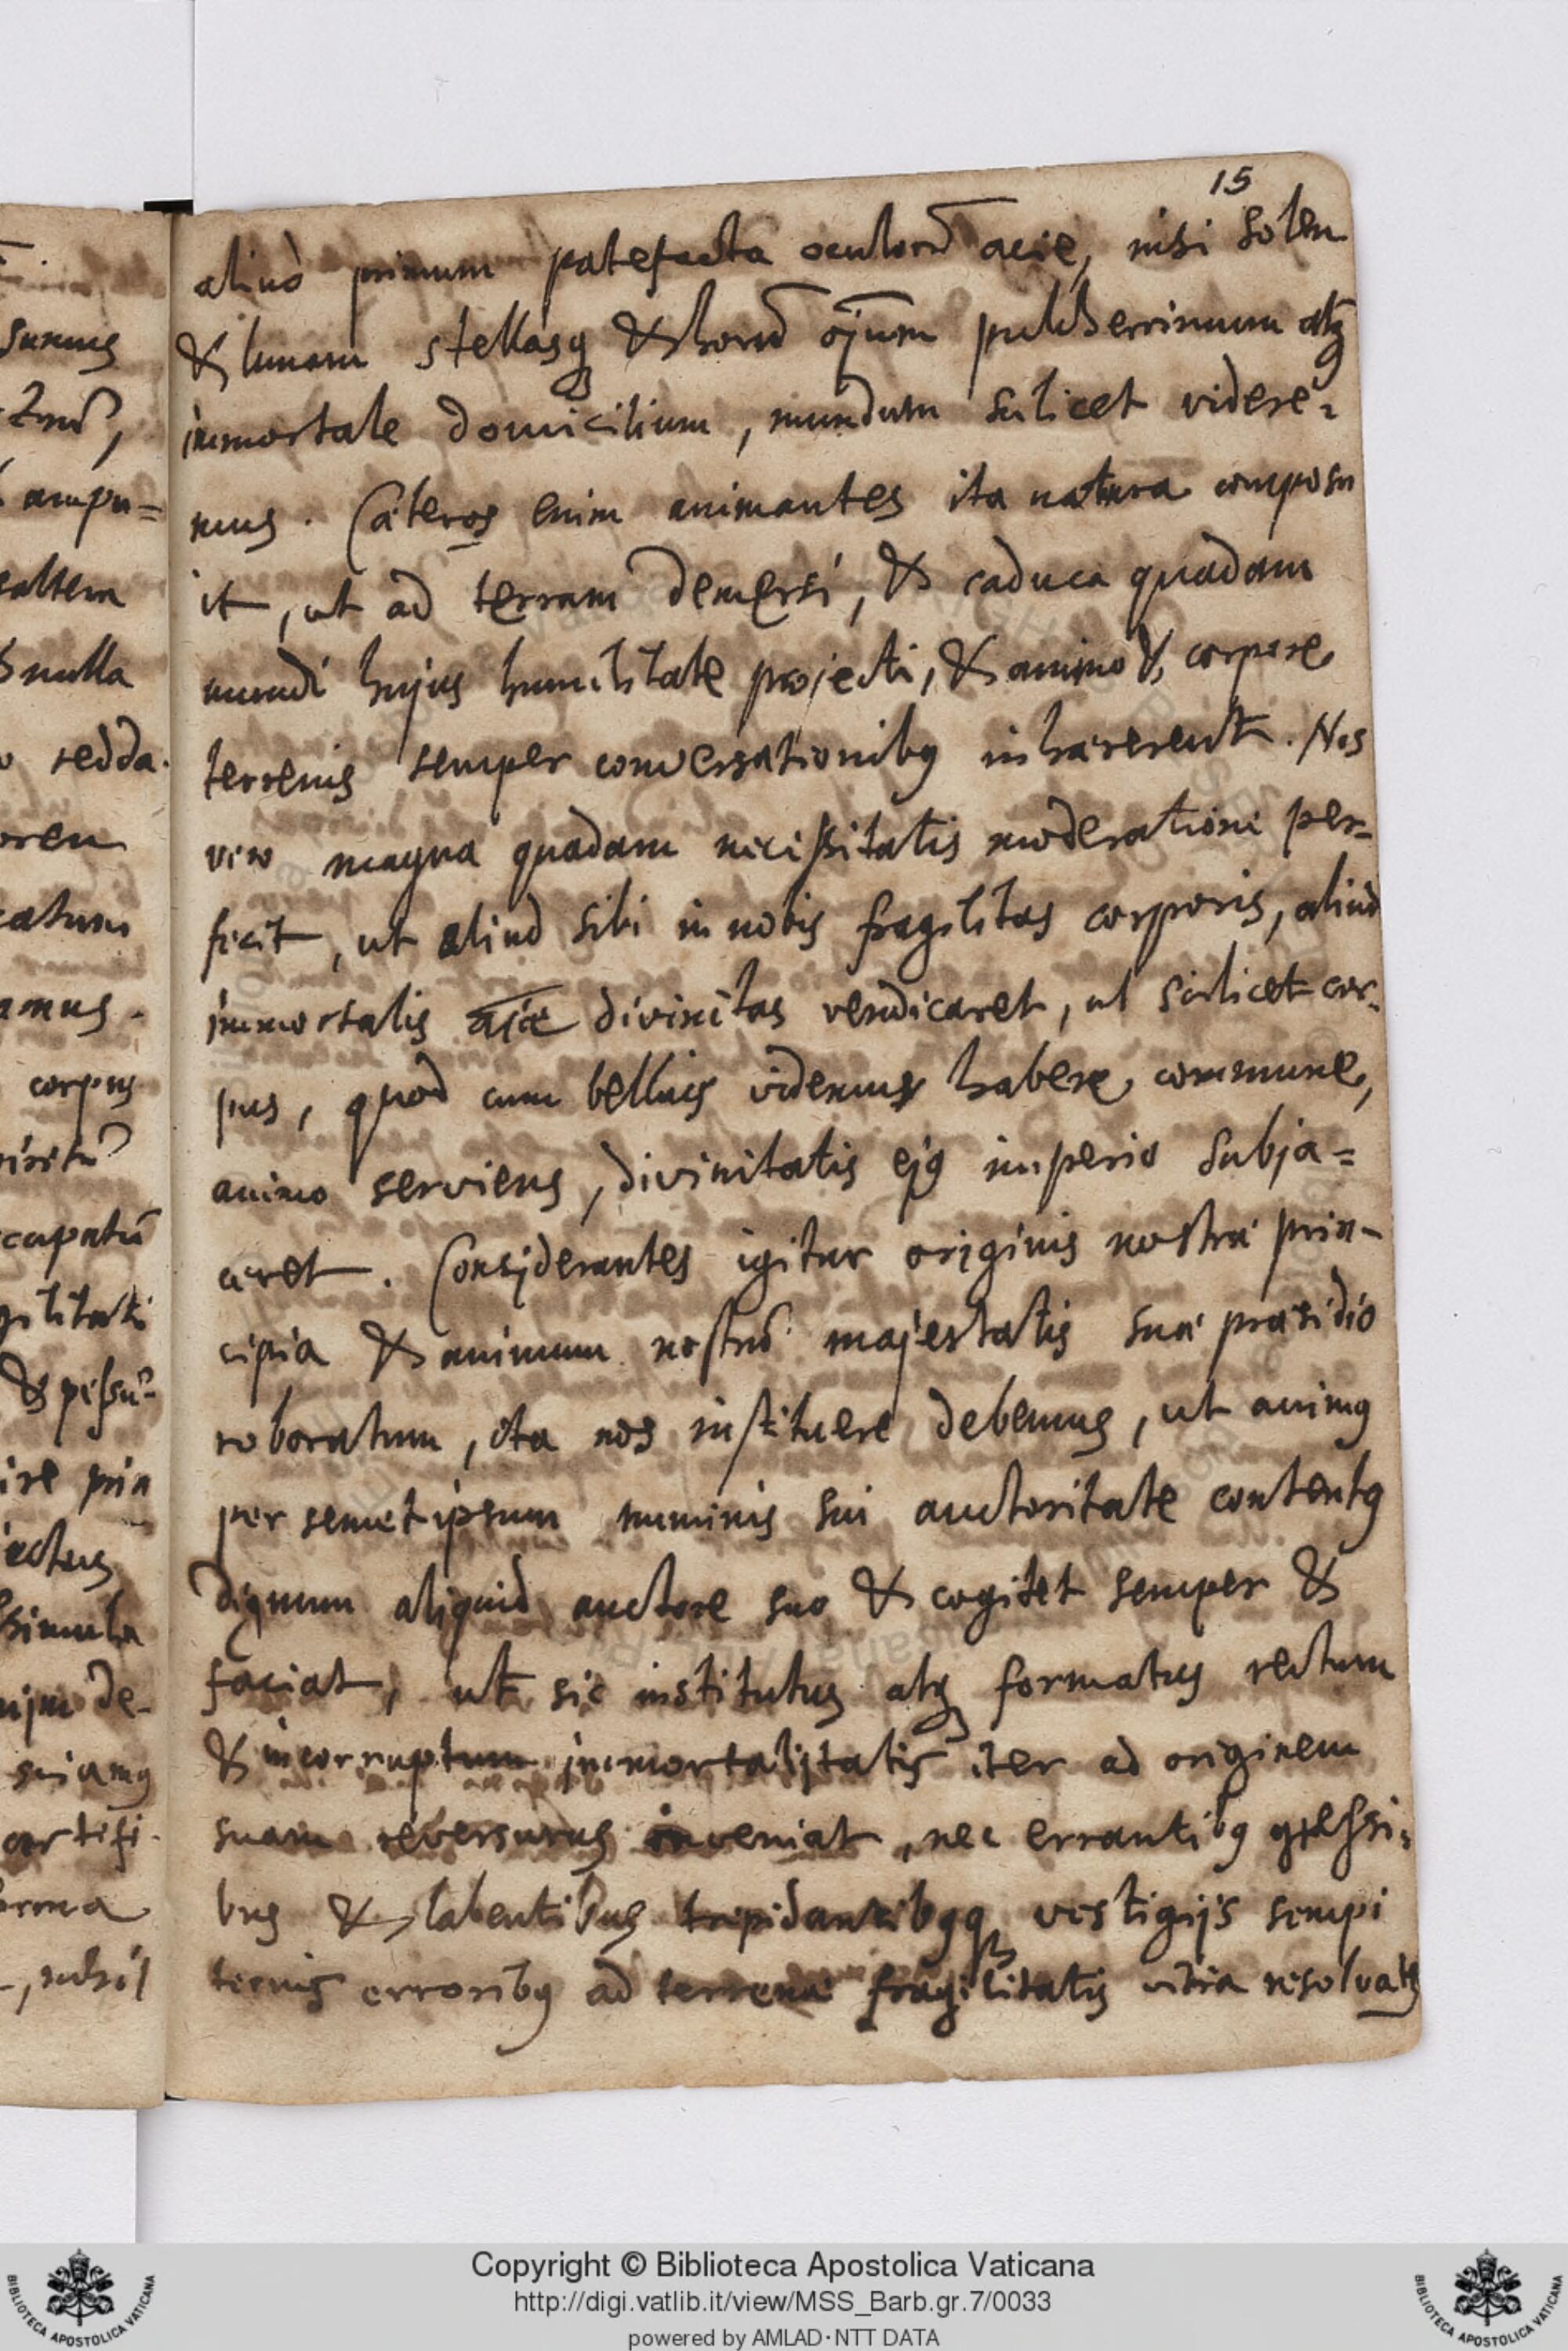 15
aliud primum patefacta oculorū acie, nisi solem
& lunam stellasq; & horū oīum pulcherrimum atq;
immortale domicilium, mundum scilicet videre=
mus. Cæteros enim animantes ita natura composu
it, ut ad terram demersi, & caduca quadam
mundi hujus humilitate projecti, & animo & corpore
terrenis semper conversationibꝰ inhærerent. Nos
vero magna quadam necessitatis moderatione per-
fecit, ut aliud sibi in nobis fragilitas corporis, aliud
immortalis aīæ divinitas vendicaret, ut scilicet cor-
pus, quod cum belluis videmus habere commune,
animo serviens, divinitatis ejꝰ imperio subja=
ceret. Considerantes igitur originis nostræ prin-
cipia & animum nostrū majestatis suæ præsidio
roboratum, ita nos instituere debemus, ut animꝰ
per semetipsum numinis sui auctoritate contentꝰ
dignum aliquid auctore suo & cogitet semper &
faciat, ut sic institutus atq; formatus rectum
& incorruptum immortalitatis iter ad originem
suam reversurus inveniat, nec errantibꝰ gressi=
bus & labentibus trepidantibꝰq; vestigijs sempi
ternis erroribꝰ ad terrenæ fragilitatis vitia resolvatꝰ
sumus
ampu=
saltem
nulla
redda.
corpus
& pessu=
ire prin
de-
sciamꝰ
artifi-
, nihil
Copyright © Biblioteca Apostolica Vaticana
http://digi.vatlib.it/view/MSS_Barb.gr.7/0033
powered by AMLAD·NTT DATA
BIBLIOTECA APOSTOLICA VATICANA
BIBLIOTECA APOSTOLICA VATICANA